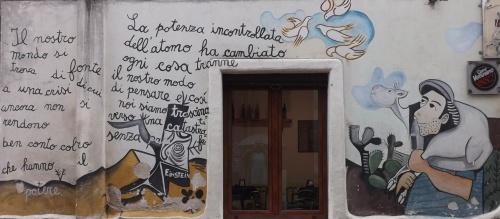 Il nostro
mondo si
trova di fronte
a una crisi di cui
ancora non si
rendono
ben conto coloro
che hanno il
potere
La potenza incontrollata
dell'atomo ha cambiato
ogni cosa tranne
il nostro modo
di pensare e così
noi siamo trascinati
verso una catastrofe
senza
EINSTEIN